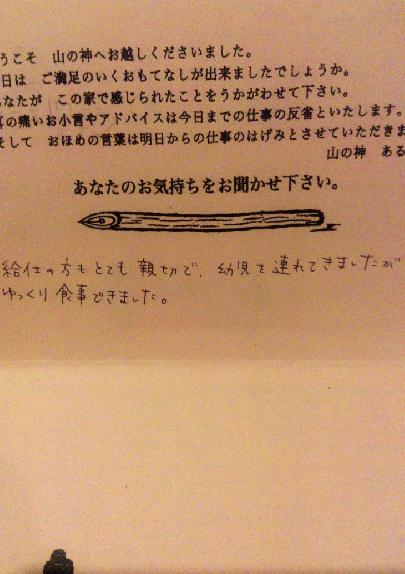 うこそ 山の神へお越しくださいました。
日は ご満足のいくおもてなしが出来ましたでしょうか。
なたが この家で感じられたことをうかがわせて下さい。
の痛いお小言やアドバイスは今日までの仕事の反省といたします。
して おほめの言葉は明日からの仕事のはげみとさせていただきま
山の神 ある
あなたのお気持ちをお聞かせ下さい。
給仕の方もとても親切で、幼児を連れてきましたが
ゆっくり食事できました。